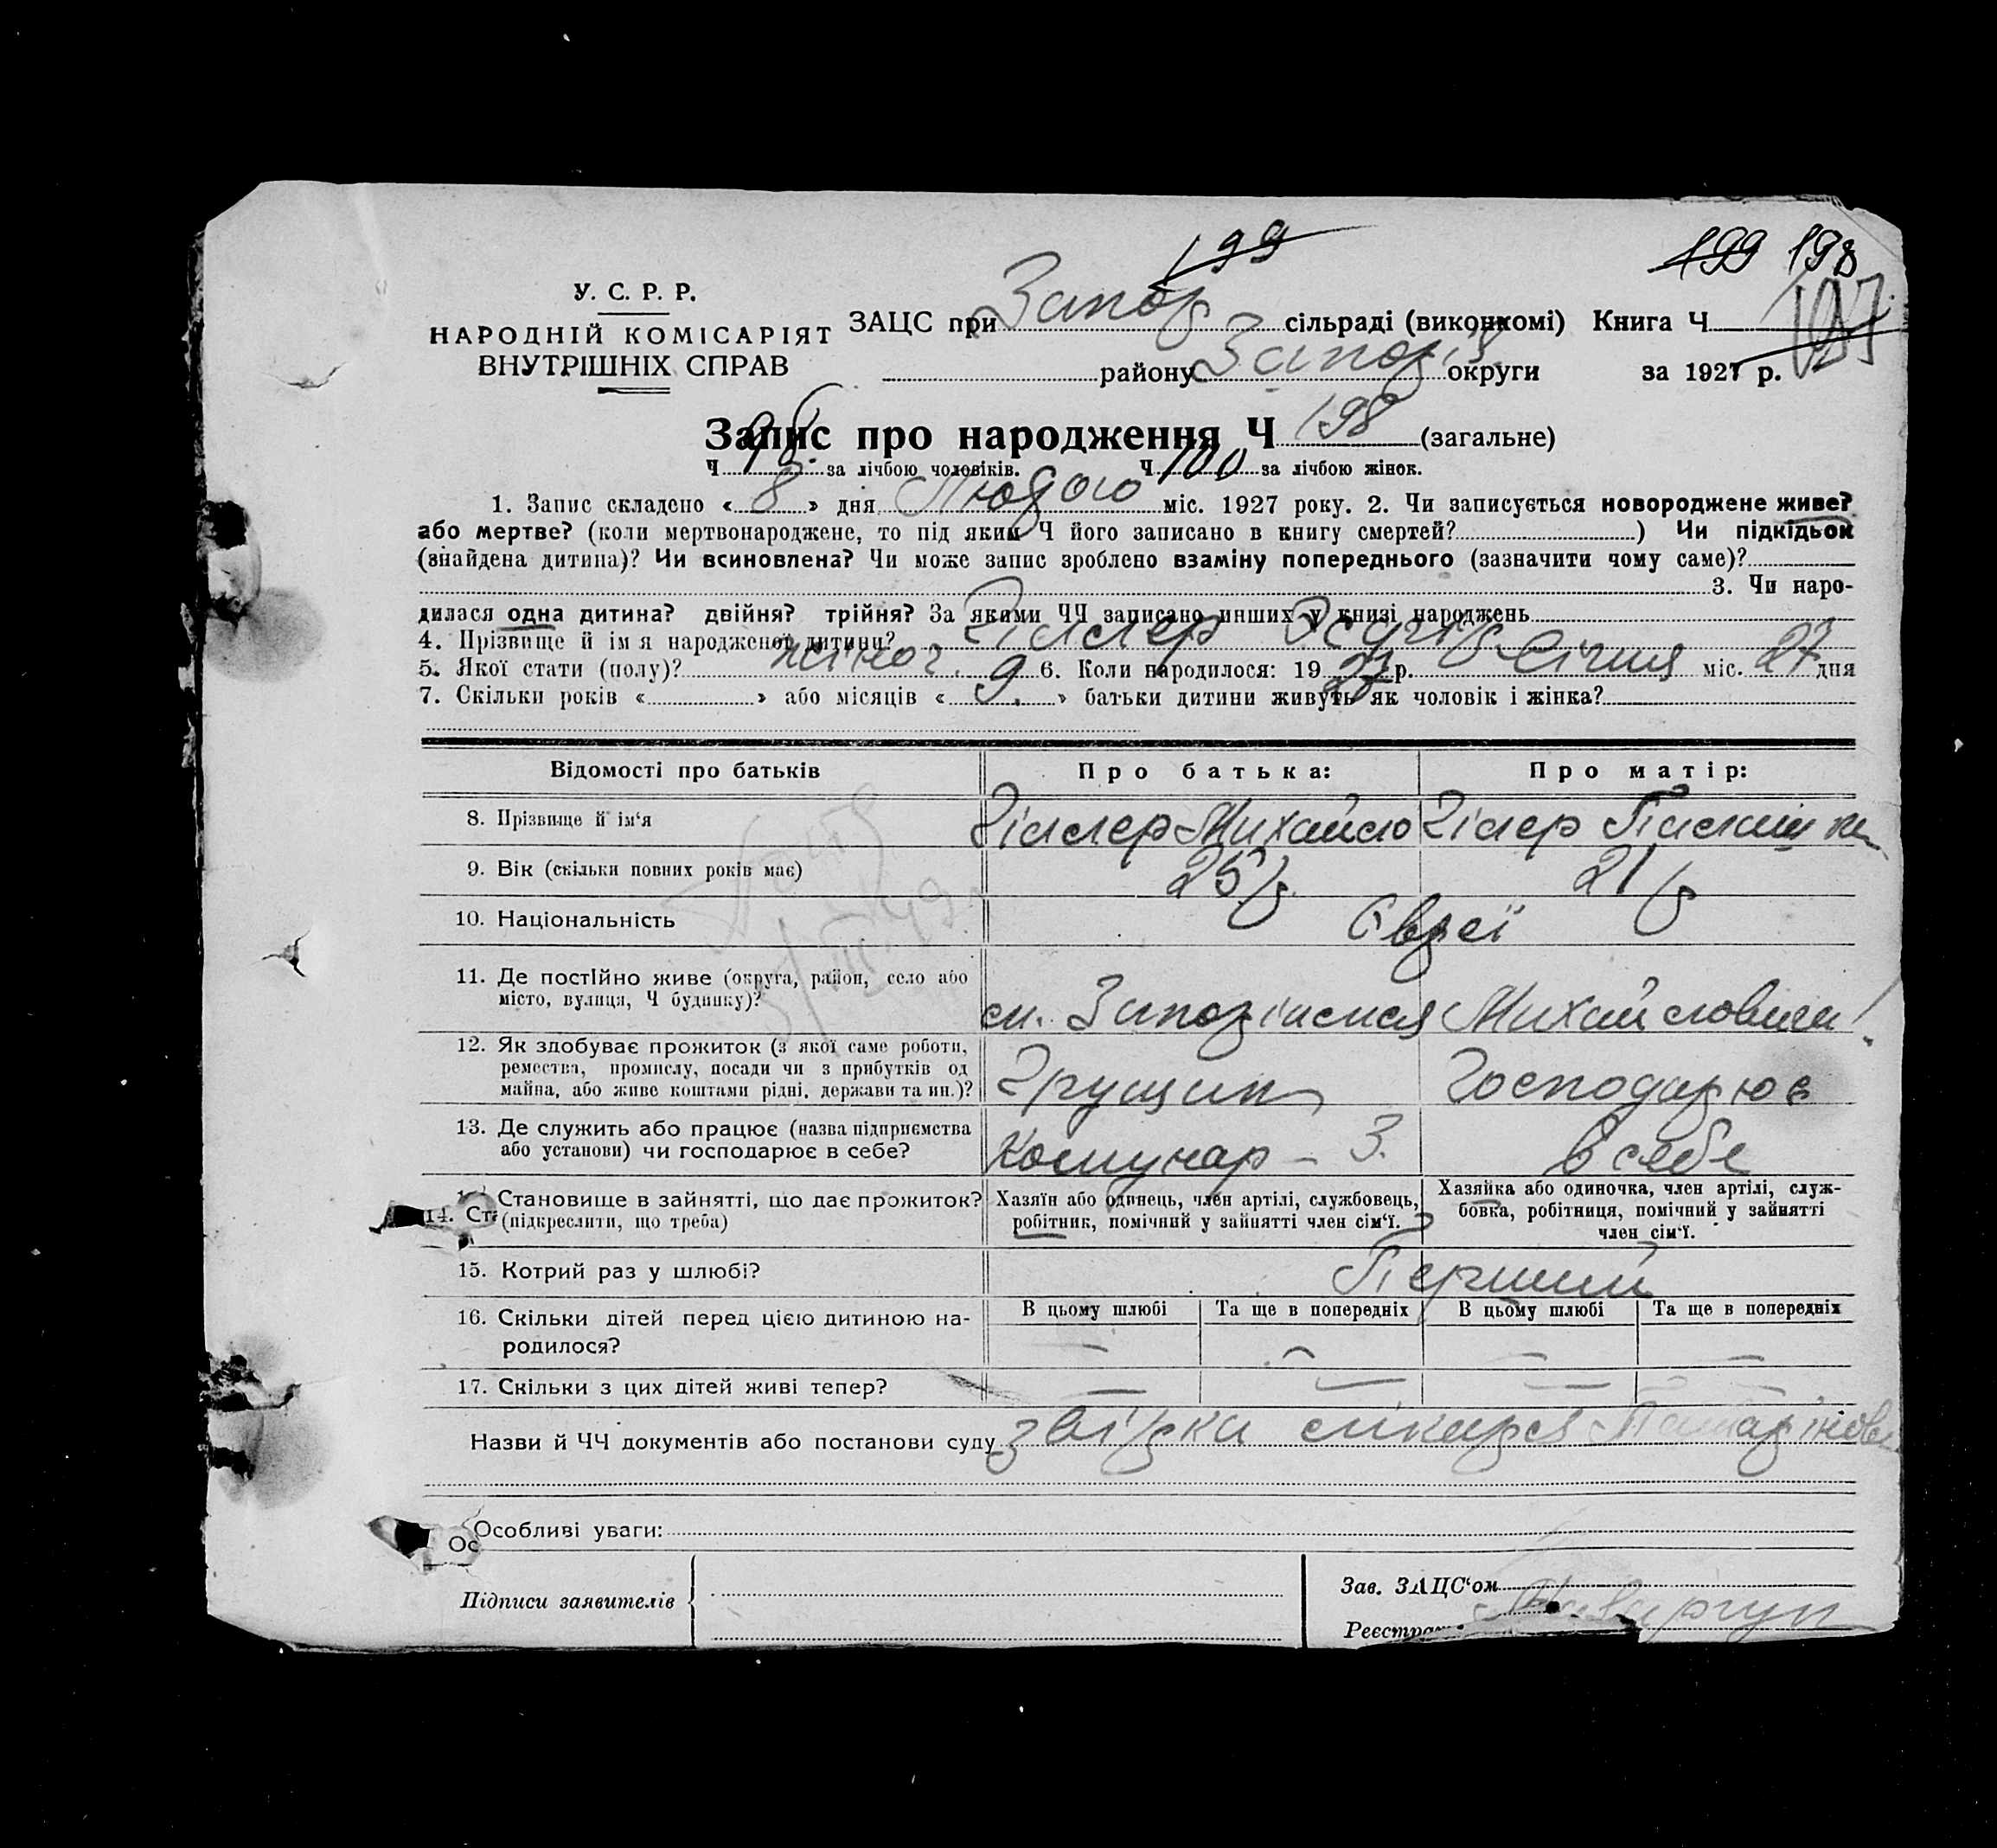 199
199 198
У. С. Р. Р.
НАРОДНІЙ КОМІСАРІЯТ
ВНУТРІШНІХ СПРАВ
ЗАЦС при Запор сільраді (виконкомі) Книга Ч 197
району Запоріз округи за 1927 р.
Запис про народження Ч 198 (загальне)
Ч 98. за лічбою чоловіків. Ч 100 за лічбою жінок.
1. Запис складено « 8 » дня Лютого міс. 1927 року. 2. Чи записується новороджене живе?
або мертве? (коли мертвонароджене, то під яким Ч його записано в книгу смертей?) Чи підкідьок
(знайдена дитина)? Чи всиновлена? Чи може запис зроблено взаміну попереднього (зазначити чому саме)?
3. Чи наро-
дилася одна дитина? двійня? трійня? За якими ЧЧ записано инших у книзі народжень
4. Прізвище й ім я народженої дитини? Гіллер
5. Якої стати (полу)? жіноч. 6. Коли народилося: 1927 р. Січня міс. 27 дня
7. Скільки років « » або місяців « 9. » батьки дитини живуть як чоловік і жінка?
Відомості про батьків
Про батька:
Про матір:
8. Прізвище й ім‘я
Гіллер Михайло
Гілер
9. Вік (скільки повних років має)
25 р.
21 р
10. Національність
Євреї
11. Де постійно живе (округа, район, село або
місто, вулиця, Ч будинку)?
12. Як здобуває прожиток (з якої саме роботи,
ремества, промислу, посади чи з прибутків од
майна, або живе коштами рідні, держави та ин.)?
Господарює
13. Де служить або працює (назва підприємства
або установи) чи господарює в себе?
Комунар – З.
в себе
14. Ст
Становище в зайнятті, що дає прожиток?
(підкреслити, що треба)
Хазяїн або одинець, член артілі, службовець,
робітник, помічний у зайнятті член сім‘ї.
Хазяйка або одиночка, член артілі, служ-
бовка, робітниця, помічний у зайнятті
член сім‘ї.
15. Котрий раз у шлюбі?
Перший
16. Скільки дітей перед цією дитиною на-
родилося?
В цьому шлюбі
Та ще в попередніх
В цьому шлюбі
Та ще в попередніх
17. Скільки з цих дітей живі тепер?
Назви й ЧЧ документів або постанови суду звірка лікаря
Ос
Особливі уваги:
Підписи заявителів
Зав. ЗАЦС‘ом
Реєстра